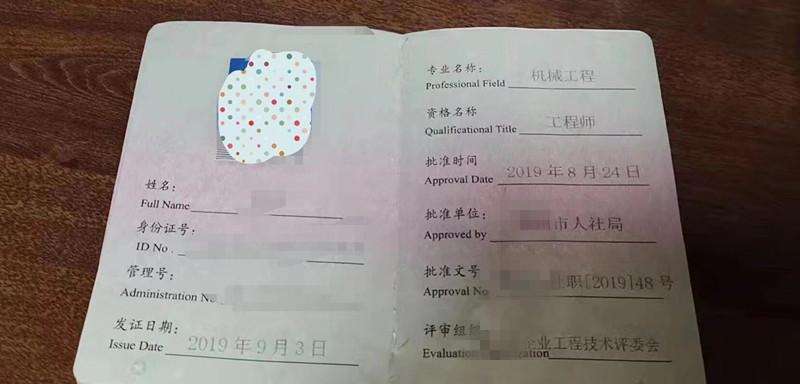 姓名：
Full Name
身份证号：
ID No.
管理号：
Administration No.
发证日期：
Issue Date 2019年9月3日
专业名称：
Professional Field 机械工程
资格名称
Qualificational Title 工程师
批准时间
Approval Date 2019年8月24日
批准单位：
Approved by 市人社局
批准文号
Approval No 职[2019]48号
评审组织
Evaluation 企业工程技术评委会